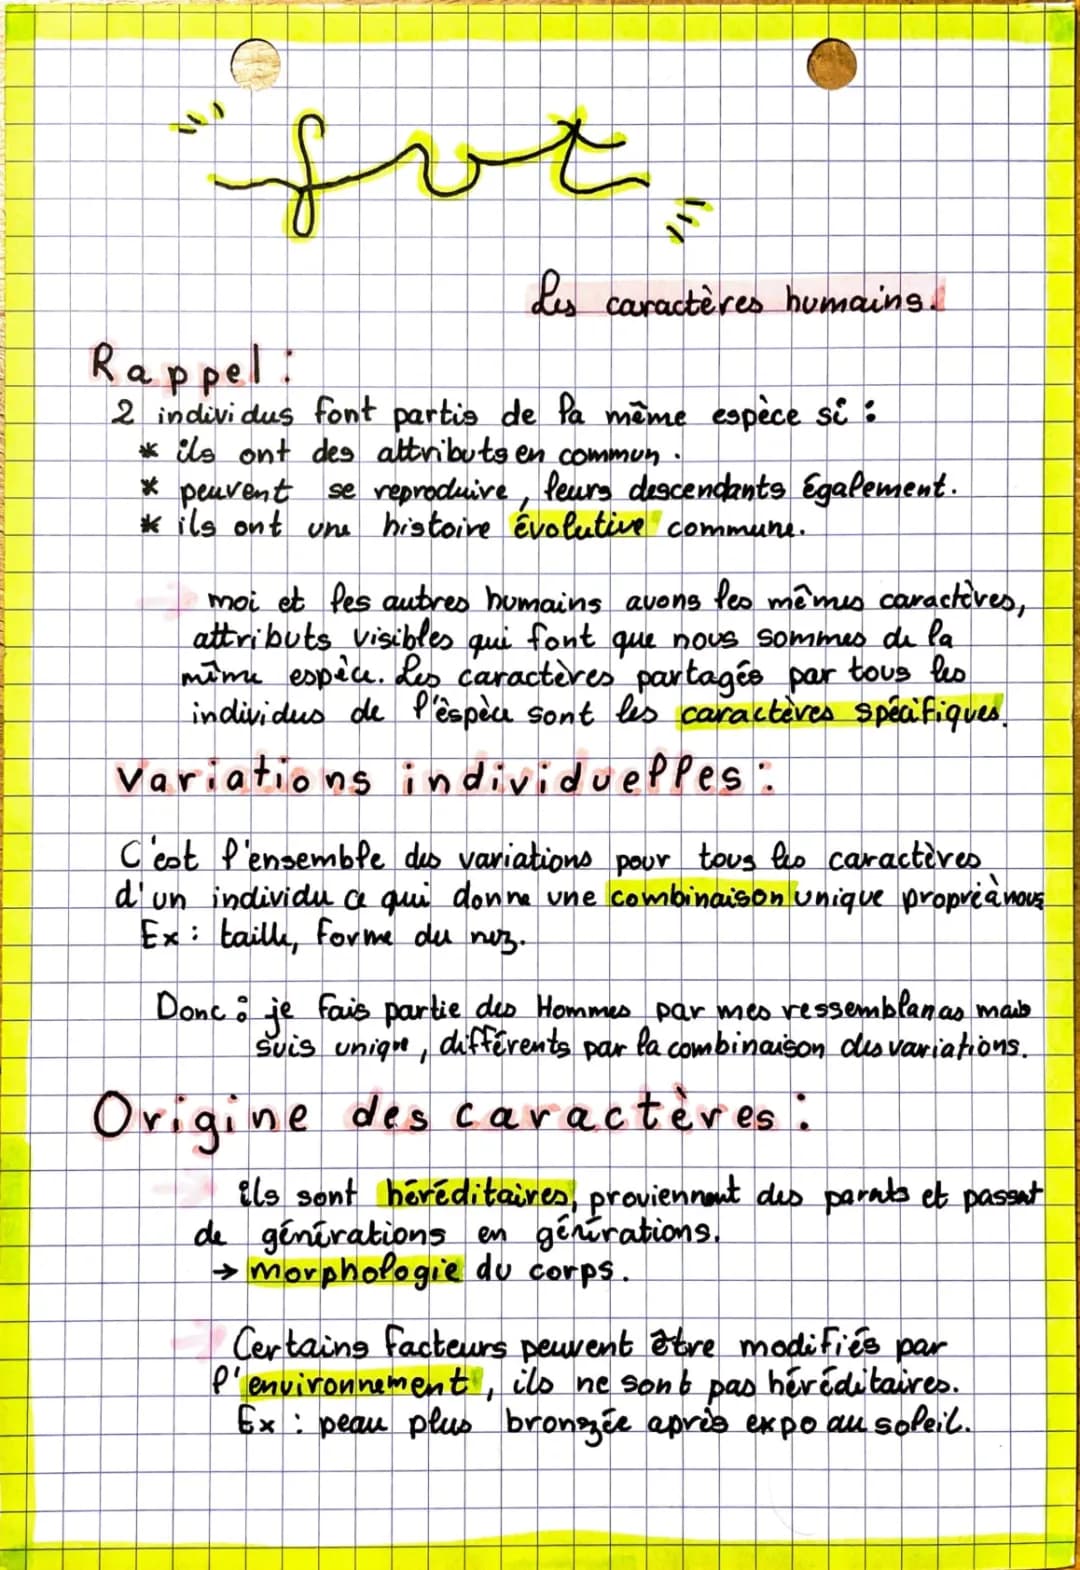 svt
Les caractères humains.
Rappel :
2 individus font partis de la même espèce si :
* ils ont des attributs en commun.
* peuvent se reproduire, leurs descendants également.
* ils ont une histoire évolutive commune.
→ moi et les autres humains avons les mêmes caractères,
attributs visibles qui font que nous sommes de la
même espèce. Les caractères partagés par tous les
individus de l'èspèce sont les caractères spécifiques.
Variations individuelles :
C'est l'ensemble des variations pour tous les caractères
d'un individu ce qui donne une combinaison unique propre à nous
Ex : taille, forme du nez.
Donc : je fais partie des Hommes par mes ressemblances mais
suis unique, différents par la combinaison des variations.
Origine des caractères :
→ ils sont héréditaires, proviennent des parents et passent
de générations en générations.
→ morphologie du corps.
→ Certains facteurs peuvent être modifiés par
l'environnement, ils ne sont pas héréditaires.
Ex : peau plus bronzée après expo au soleil.